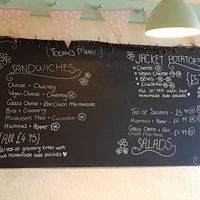 [TODAYS MENU]
SANDWICHES
Cheese + Chutney
Vegan Cheese + Chutney
Goats Cheese + Red Onion Marmalade
Brie + Cranberry
Mushroom Pate + Cucumber
Hummus + Pepper
[All £4.95]
Served on granary bread with
two homemade side salads
JACKET POTATOES
Cheese
Vegan Cheese
Beans
All served with two
homemade side salads
Trio of Salads - £5
Hummus + Pepper
Goats Cheese + Red
Onion Marmalade
SALADS